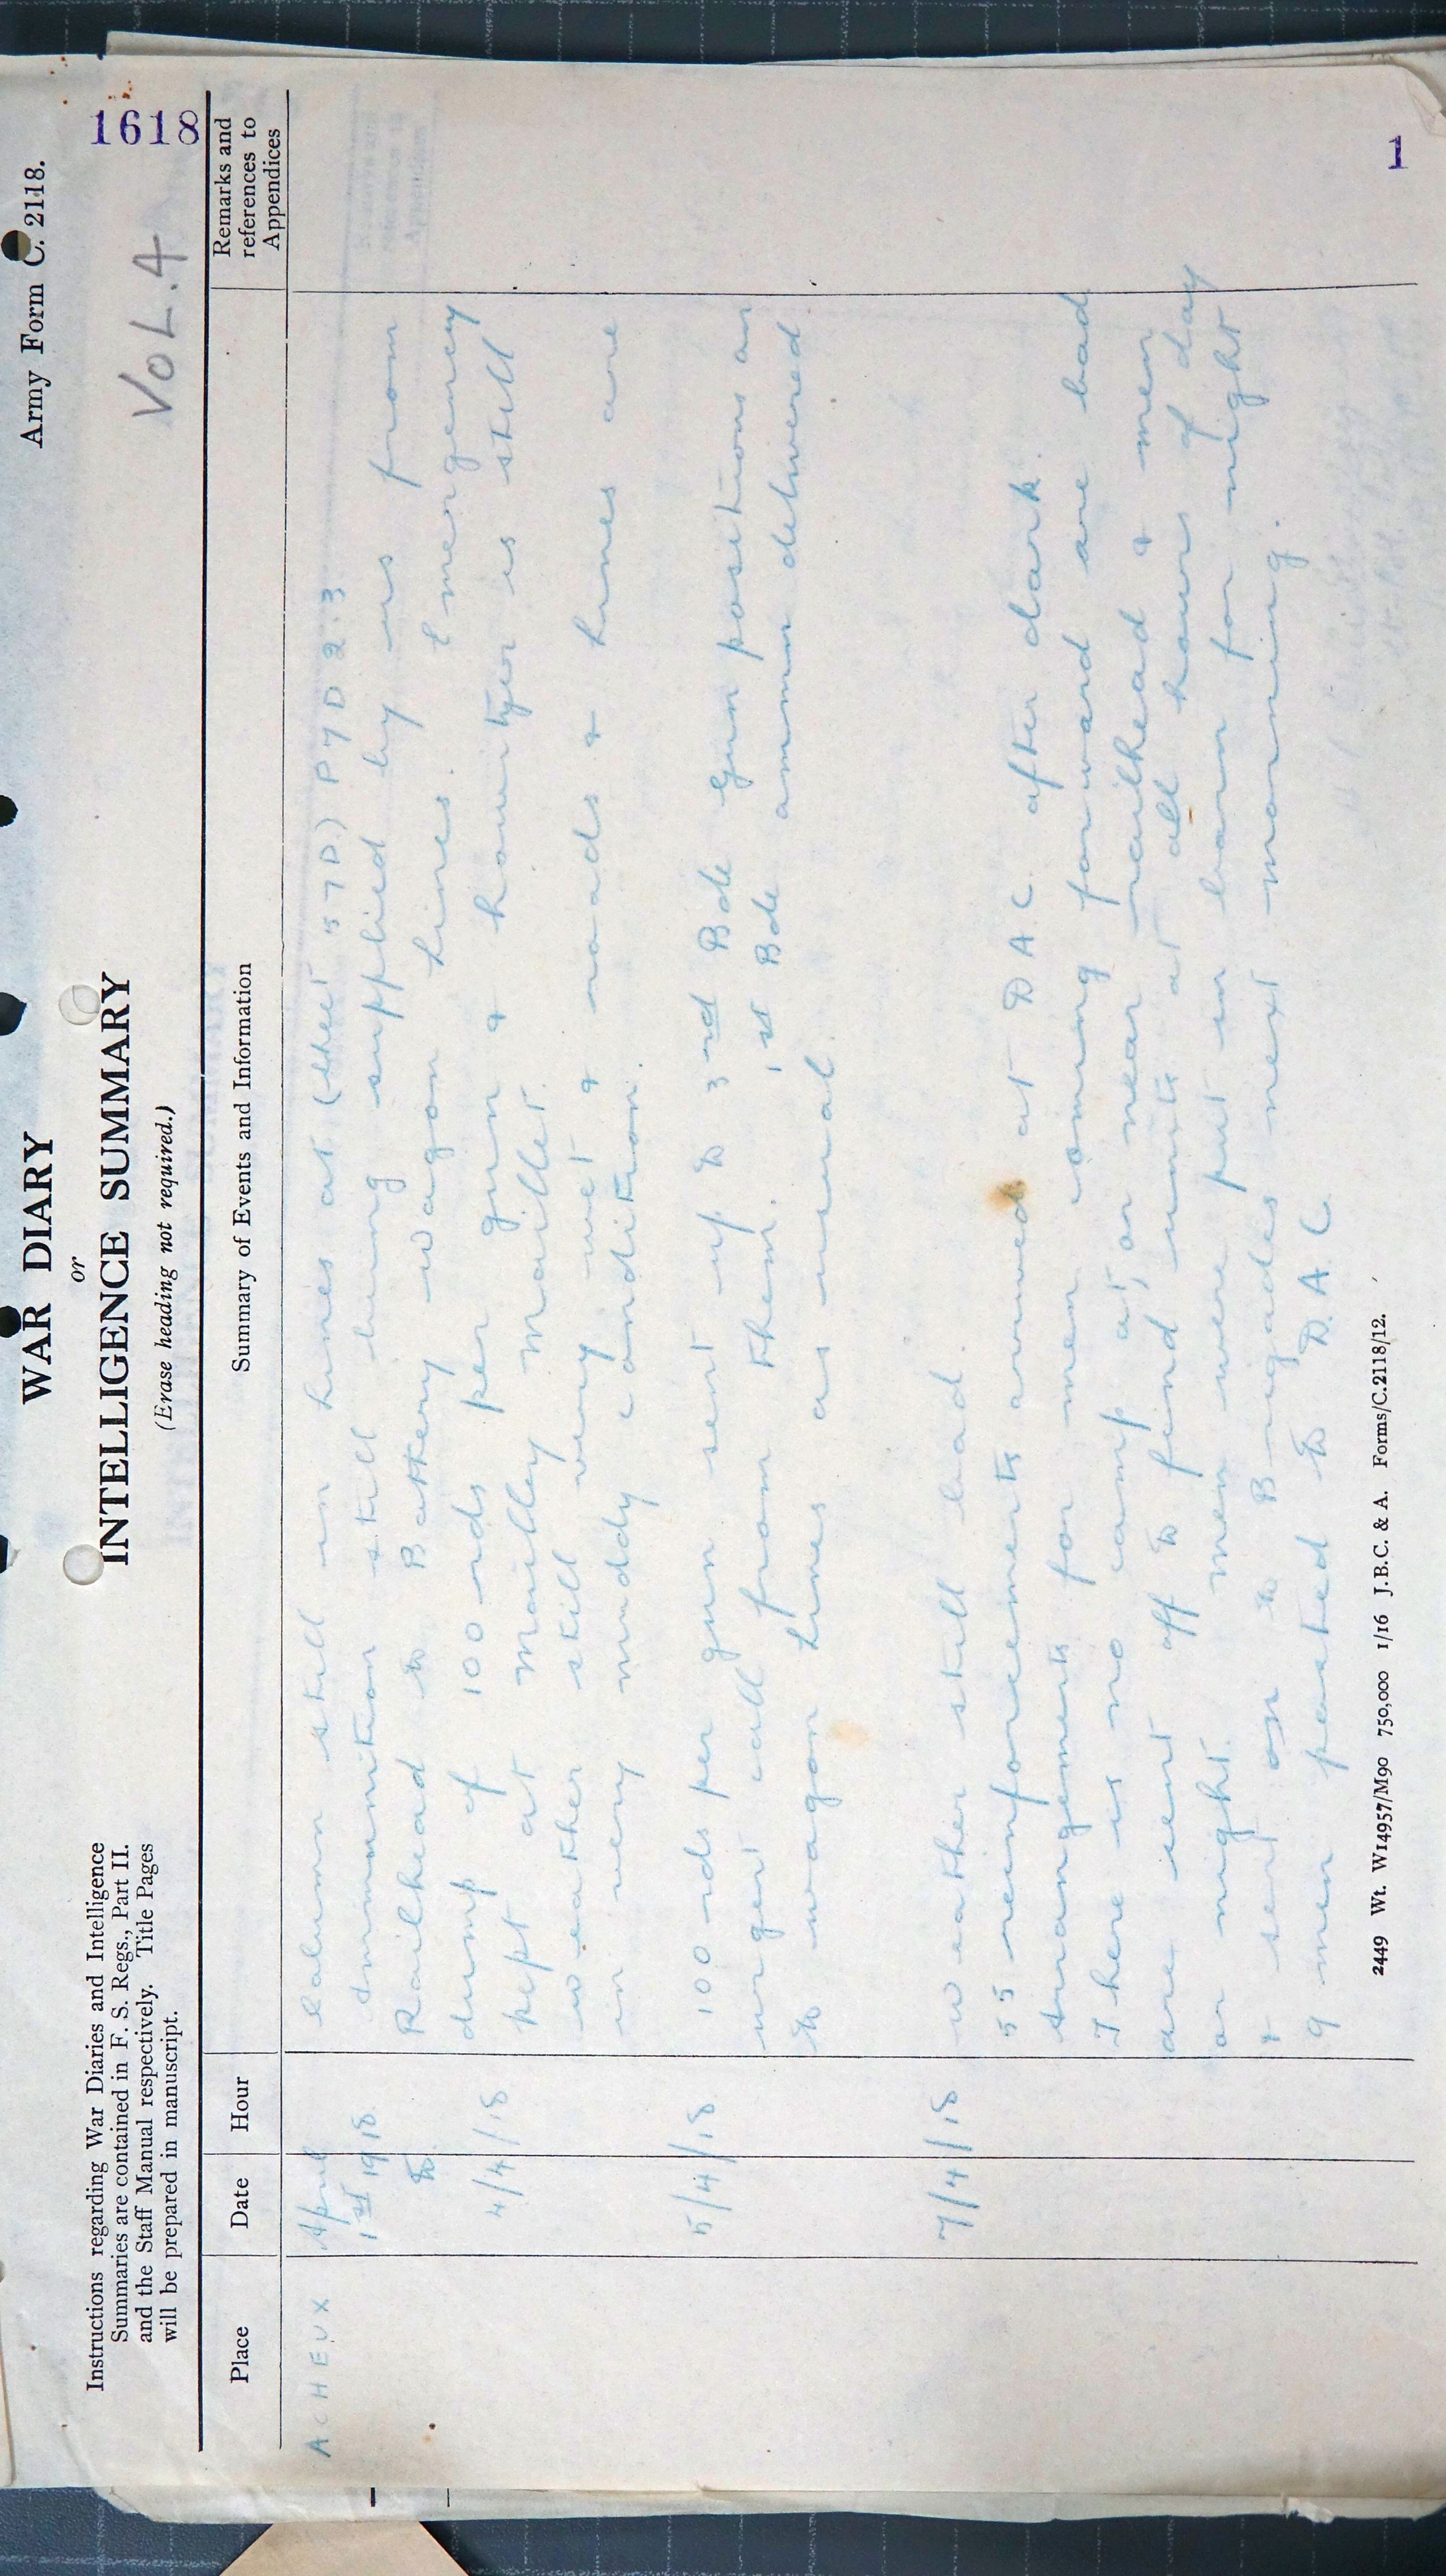 Army Form C. 2118.
WAR DIARY
or
INTELLIGENCE SUMMARY
(Erase heading not required.)
Instructions regarding War Diaries and Intelligence
Summaries are contained in F. S. Regs., Part II.
and the Staff Manual respectively. Title Pages
will be prepared in manuscript.
1618
VOL. 4
Place
Date
Hour
Summary of Events and Information
Remarks and
references to
Appendices
ACHEUX
April
1st 1918
to
4/4/18
Column still in lines at (sheet 57D) P7D2.3
Ammunition still being supplied by us from
Railhead to Battery wagon lines. Emergency
dump of 100 rds per gun & howitzer is still
kept at Mailley Maillet.
weather still very wet & roads & lines are
in very muddy condition.
5/4/18
100 rds per gun sent up to 3rd Bde Gun positions on
urgent call from them. 1st Bde ammn delivered
to wagon lines as usual.
7/4/18
weather still bad.
55 reinforcements arrived at DAC after dark.
Arrangements for men coming forward are bad
There is no camp at, or near railhead & men
are sent off to find units at all hours of day
or night. Men were put in barn for night
& sent on to Brigades next morning.
9 men posted to D.A.C.
2449 Wt. W14957/M90 750,000 1/16 J.B.C. & A. Forms/C.2118/12.
1